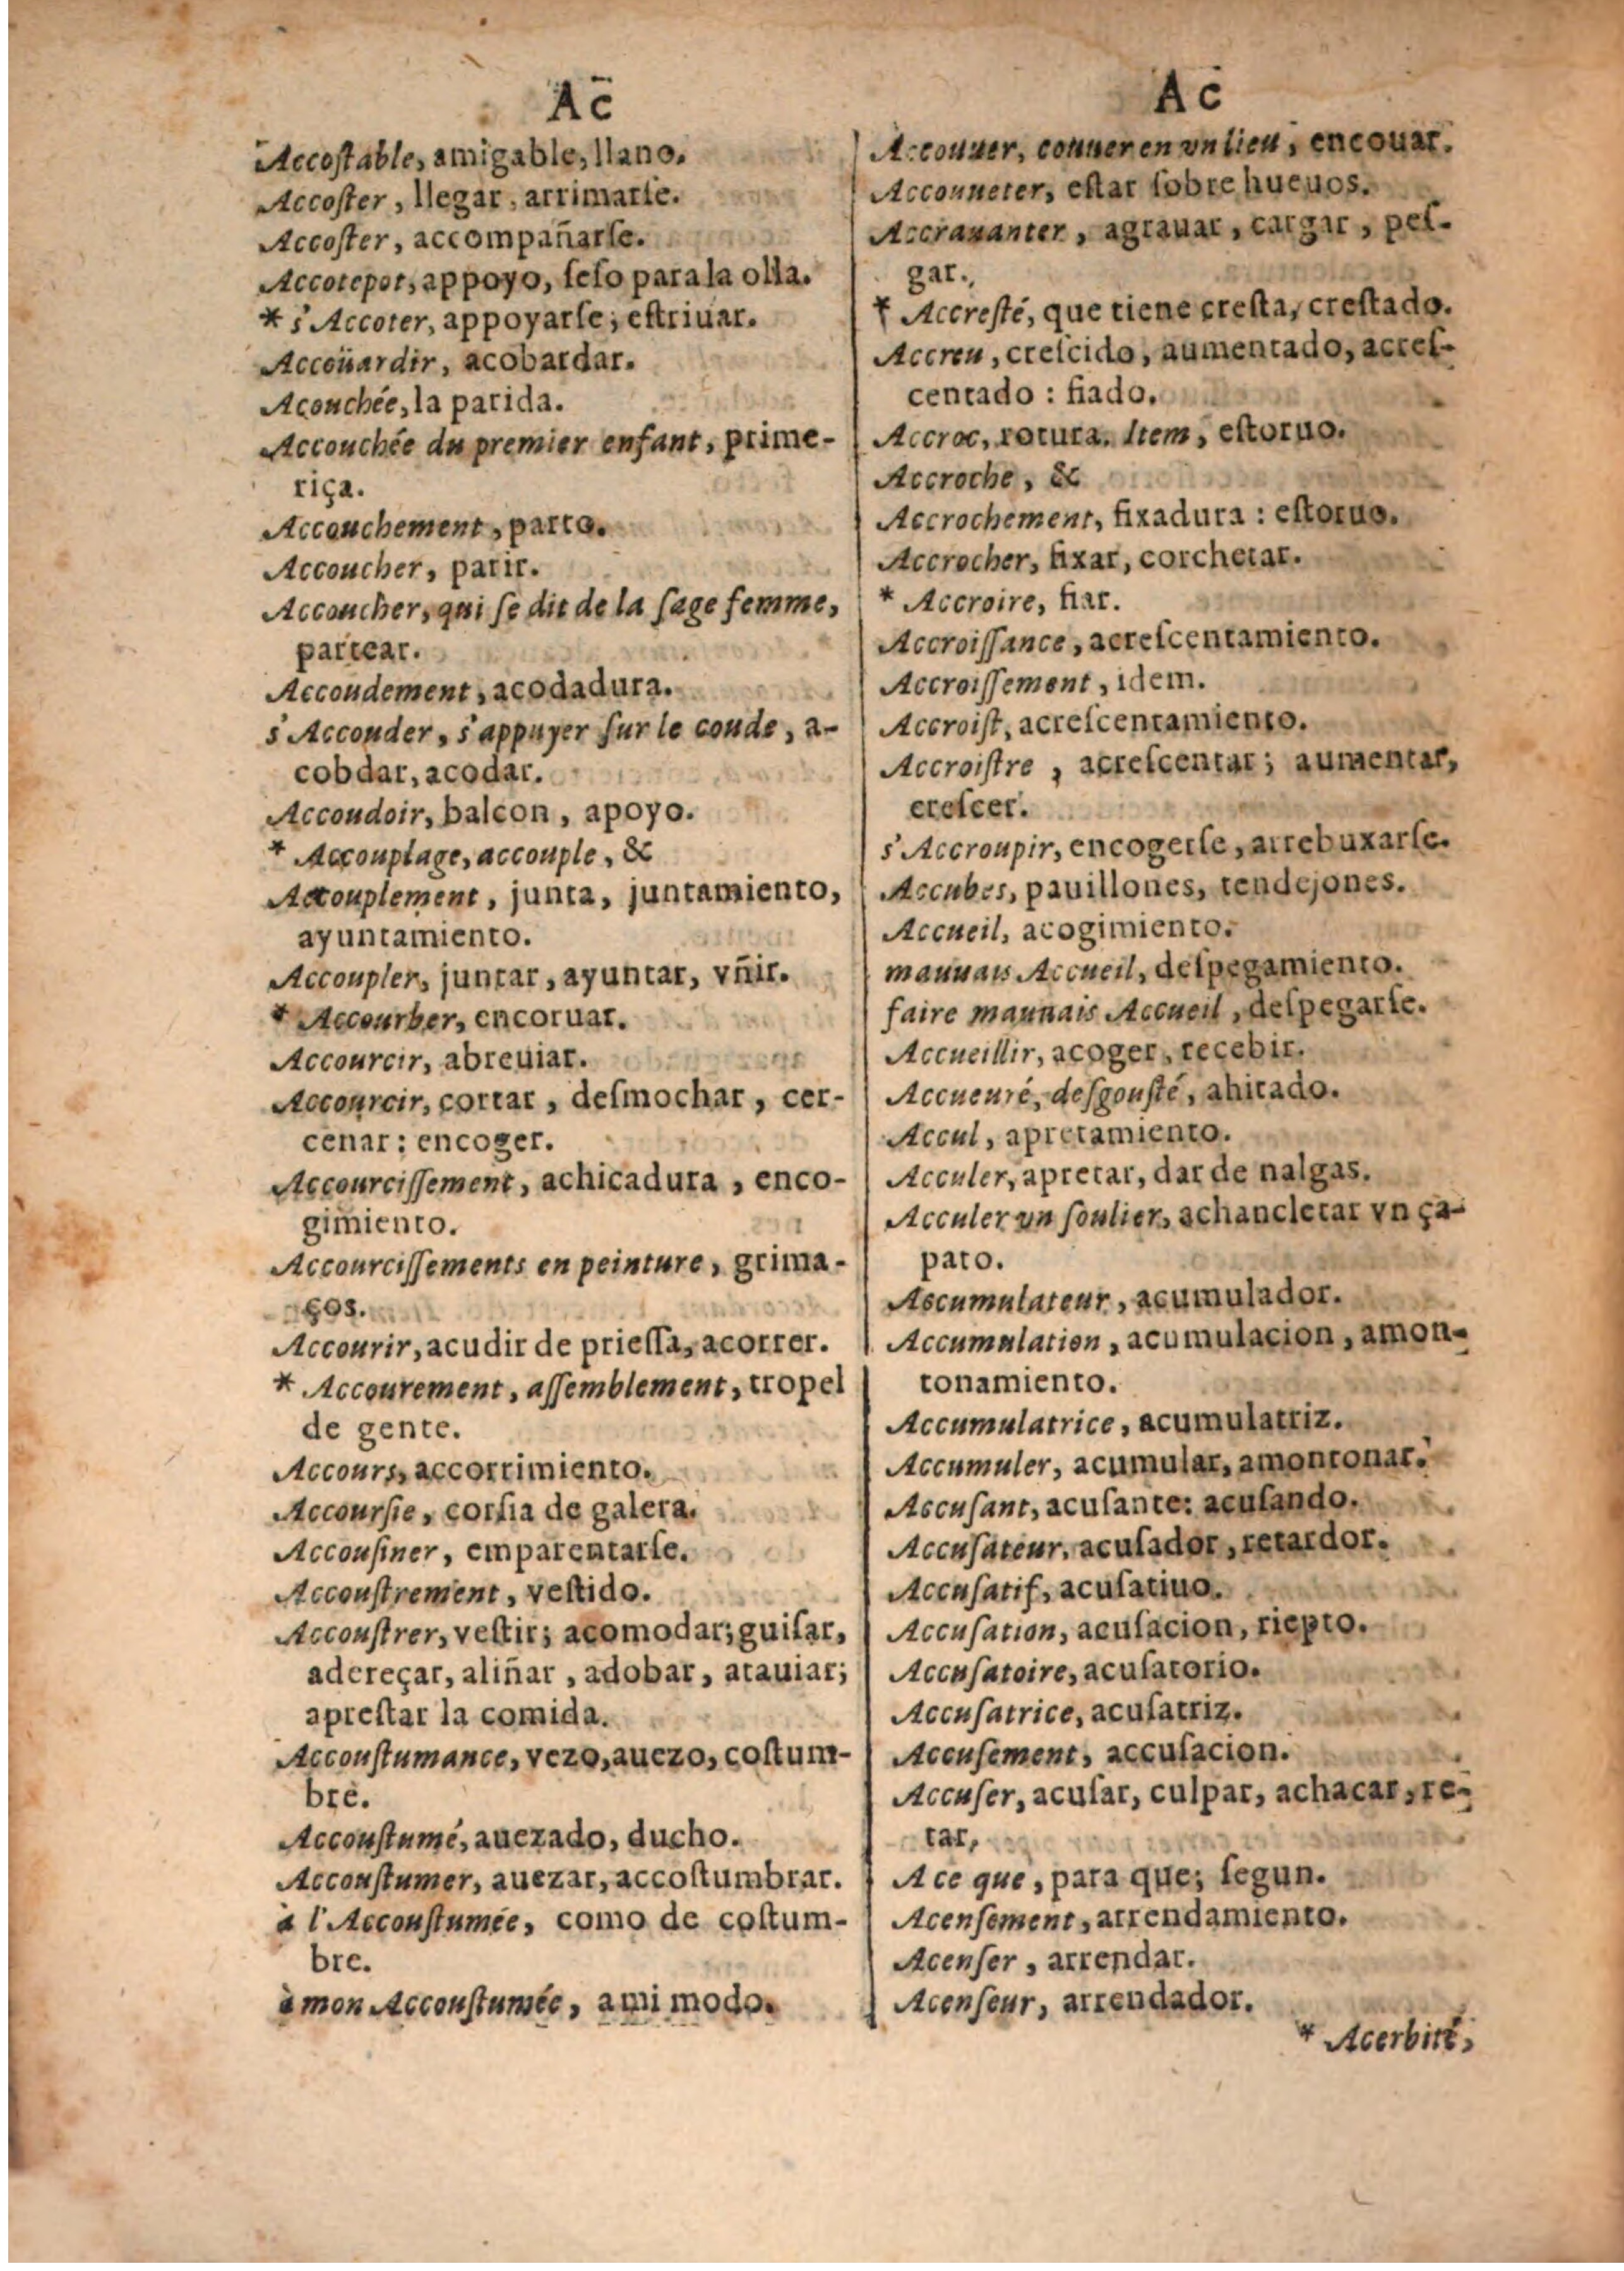 Ac
Accoſtable, amigable, llano.
Accoſter, llegar, arrimarſe.
Accoſter, accompañarſe.
Accotepot, appoyo, ſeſo para la olla.
* s'Accoter, appoyarſe; eſtriuar.
Accoüardir, acobardar.
Acouchée, la parida.
Accouchée du premier enfant, prime-
riça.
Accouchement, parto.
Accoucher, parir.
Accoucher, qui ſe dit de la ſage femme,
partear.
Accoudement, acodadura.
s'Accouder, s'appuyer ſur le coude, a-
cobdar, acodar.
Accoudoir, balcon, apoyo.
* Accouplage, accouple, &
Accouplement, junta, juntamiento,
ayuntamiento.
Accoupler, juntar, ayuntar, vñir.
* Accourber, encoruar.
Accourcir, abreuiar.
Accourcir, cortar, deſmochar, cer-
cenar: encoger.
Accourciſſement, achicadura, enco-
gimiento.
Accourciſſements en peinture, grima-
ços.
Accourir, acudir de prieſſa, acorrer.
* Accourement, aſſemblement, tropel
de gente.
Accours, accorrimiento.
Accourſie, corſia de galera.
Accouſiner, emparentarſe.
Accouſtrement, veſtido.
Accouſtrer, veſtir; acomodar; guiſar,
adereçar, aliñar, adobar, atauiar;
apreſtar la comida.
Accouſtumance, vezo, auezo, coſtum-
bre.
Accouſtumé, auezado, ducho.
Accouſtumer, auezar, accoſtumbrar.
à l'Accouſtumée, como de coſtum-
bre.
à mon Accouſtumée, a mi modo.
Ac
Accouuer, couuer en vn lieu, encouar.
Accouueter, eſtar ſobre hueuos.
Accrauanter, agrauar, cargar, peſ-
gar.
* Accreſté, que tiene creſta, creſtado.
Accreu, creſcido, aumentado, acreſ-
centado: fiado.
Accroc, rotura. Item, eſtoruo.
Accroche, &
Accrochement, fixadura: eſtoruo.
Accrocher, fixar, corchetar.
* Accroire, fiar.
Accroiſſance, acreſcentamiento.
Accroiſſement, idem.
Accroiſt, acreſcentamiento.
Accroiſtre, acreſcentar; aumentar,
creſcer.
s'Accroupir, encogerſe, arrebuxarſe.
Accubes, pauillones, tendejones.
Accueil, acogimiento.
mauuais Accueil, deſpegamiento.
faire mauuais Accueil, deſpegarſe.
Accueillir, acoger, recebir.
Accueuré, deſgouſté, ahitado.
Accul, apretamiento.
Acculer, apretar, dar de nalgas.
Acculer vn ſoulier, achancletar vn ça-
pato.
Accumulateur, acumulador.
Accumulation, acumulacion, amon-
tonamiento.
Accumulatrice, acumulatriz.
Accumuler, acumular, amontonar.
Accuſant, acuſante: acuſando.
Accuſateur, acuſador, retardor.
Accuſatif, acuſatiuo.
Accuſation, acuſacion, riepto.
Accuſatoire, acuſatorio.
Accuſatrice, acuſatriz.
Accuſement, accuſacion.
Accuſer, acuſar, culpar, achacar, re-
tar,
A ce que, para que; ſegun.
Acenſement, arrendamiento.
Acenſer, arrendar.
Acenſeur, arrendador.
* Acerbité,